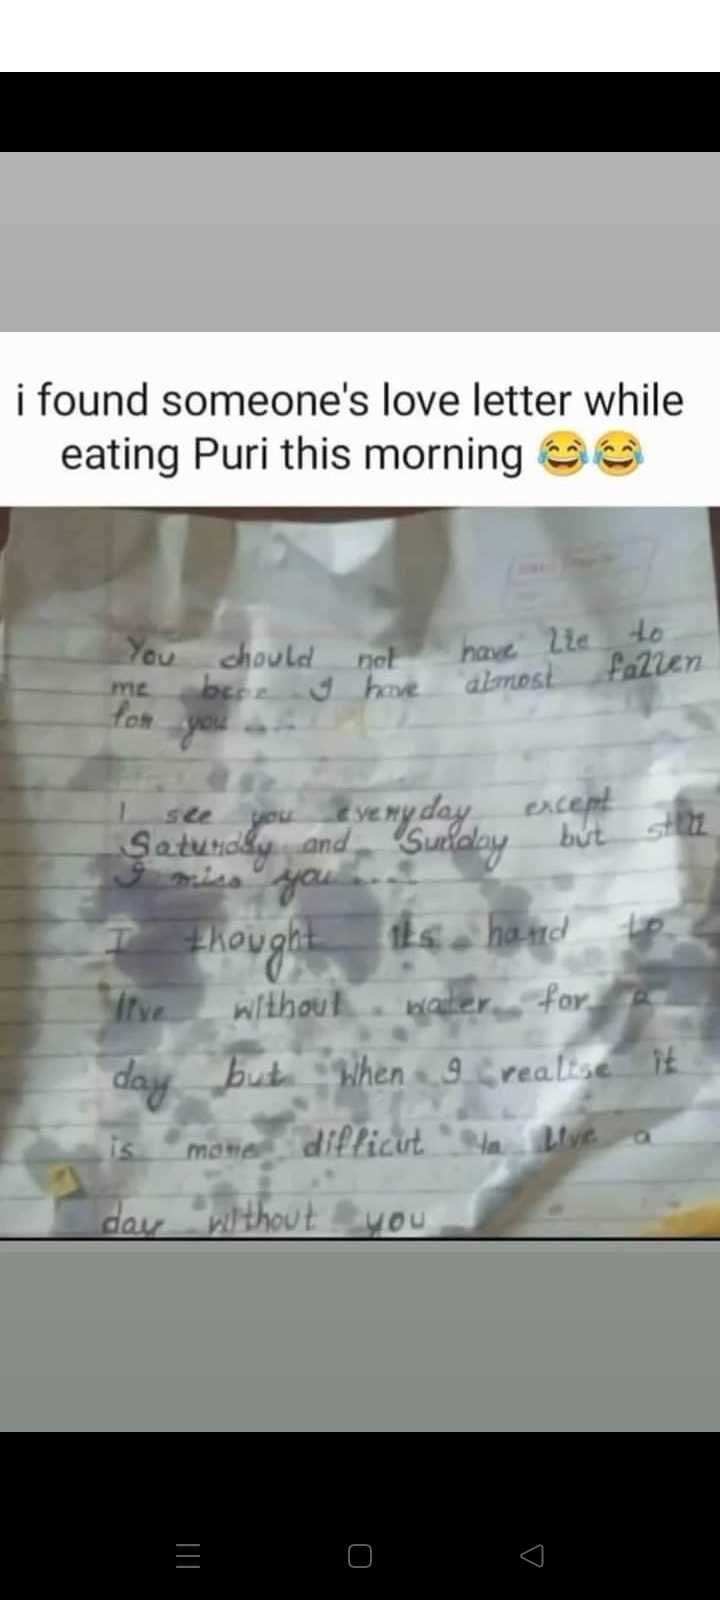 i found someone's love letter while
eating Puri this morning 😂😂
You should not have lie to
me I have almost fallen
for you ....
I see you everyday except
Saturday and Sunday but still
I miss you ....
I thought its hard to
live without water for a
day but when I realise it
is more difficut to live a
day without you